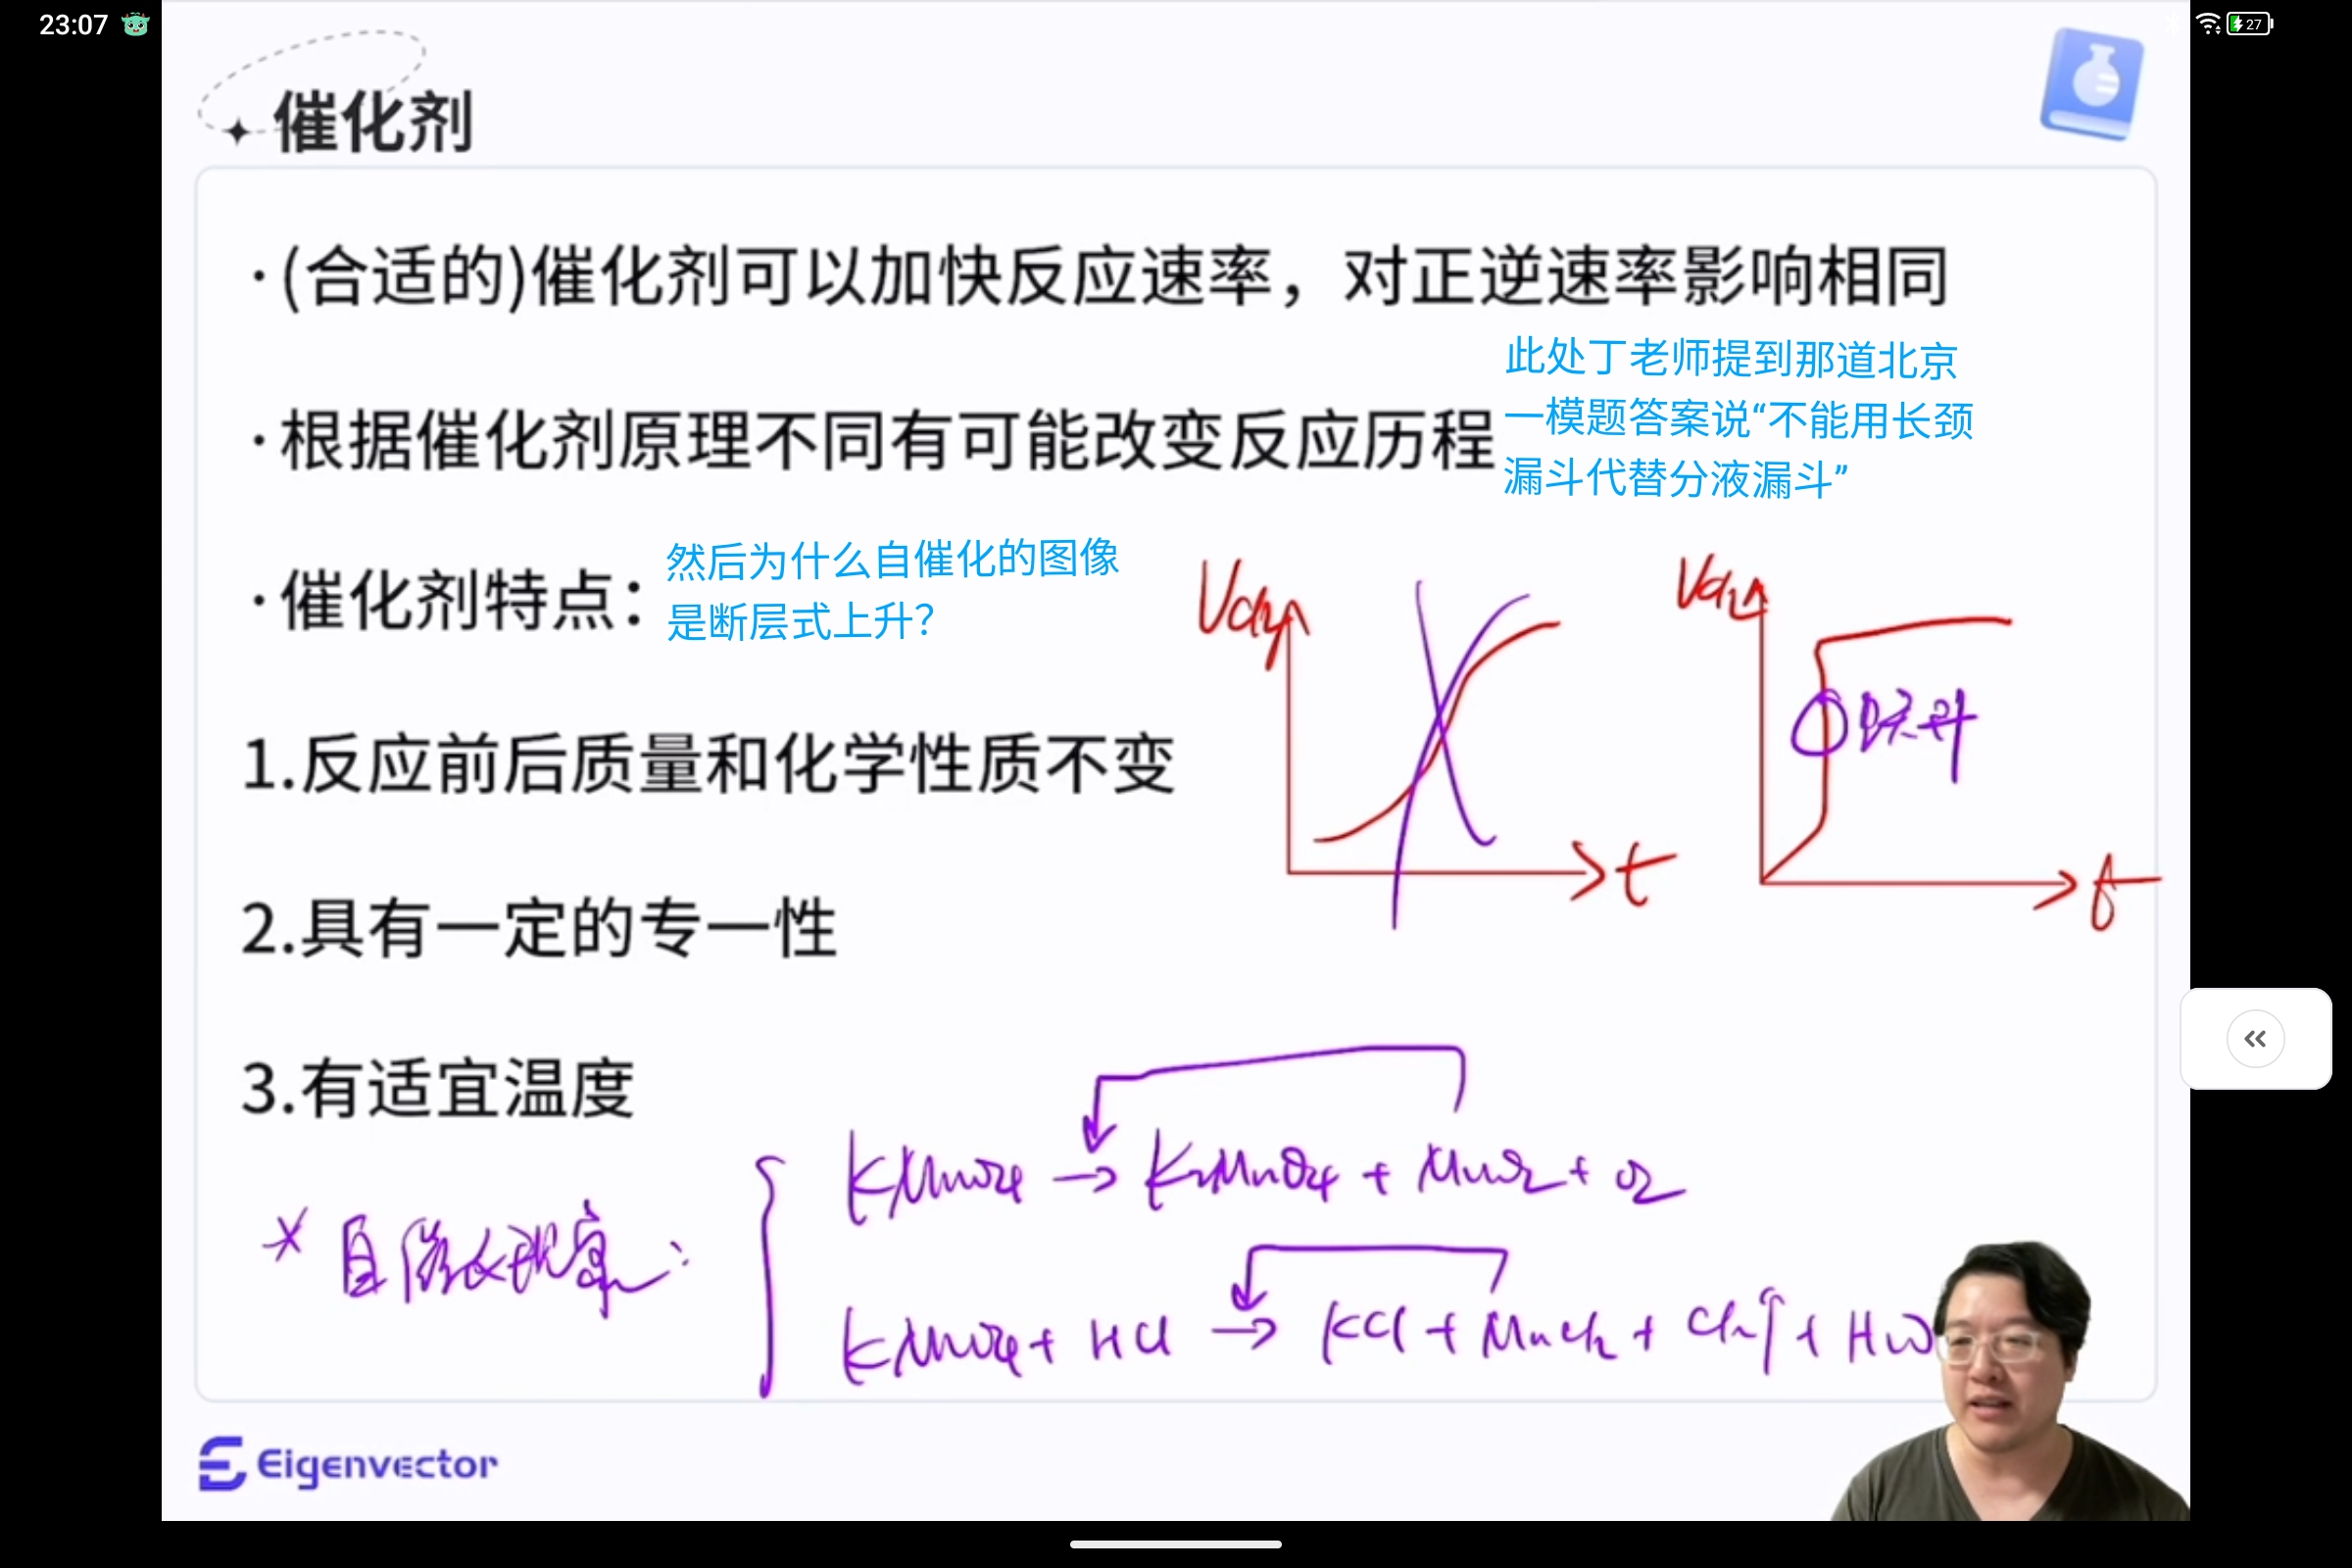 23:07
27
催化剂
·(合适的)催化剂可以加快反应速率，对正逆速率影响相同
此处丁老师提到那道北京
一模题答案说“不能用长颈
漏斗代替分液漏斗”
·根据催化剂原理不同有可能改变反应历程
·催化剂特点：
然后为什么自催化的图像
是断层式上升？
VCl₂
t
VCl₂
跃升
t
1.反应前后质量和化学性质不变
2.具有一定的专一性
3.有适宜温度
* 自催化现象：
KMnO4 → K2MnO4 + MnO2 + O2
KMnO4 + HCl → KCl + MnCl2 + Cl2↑ + H2O
Eigenvector